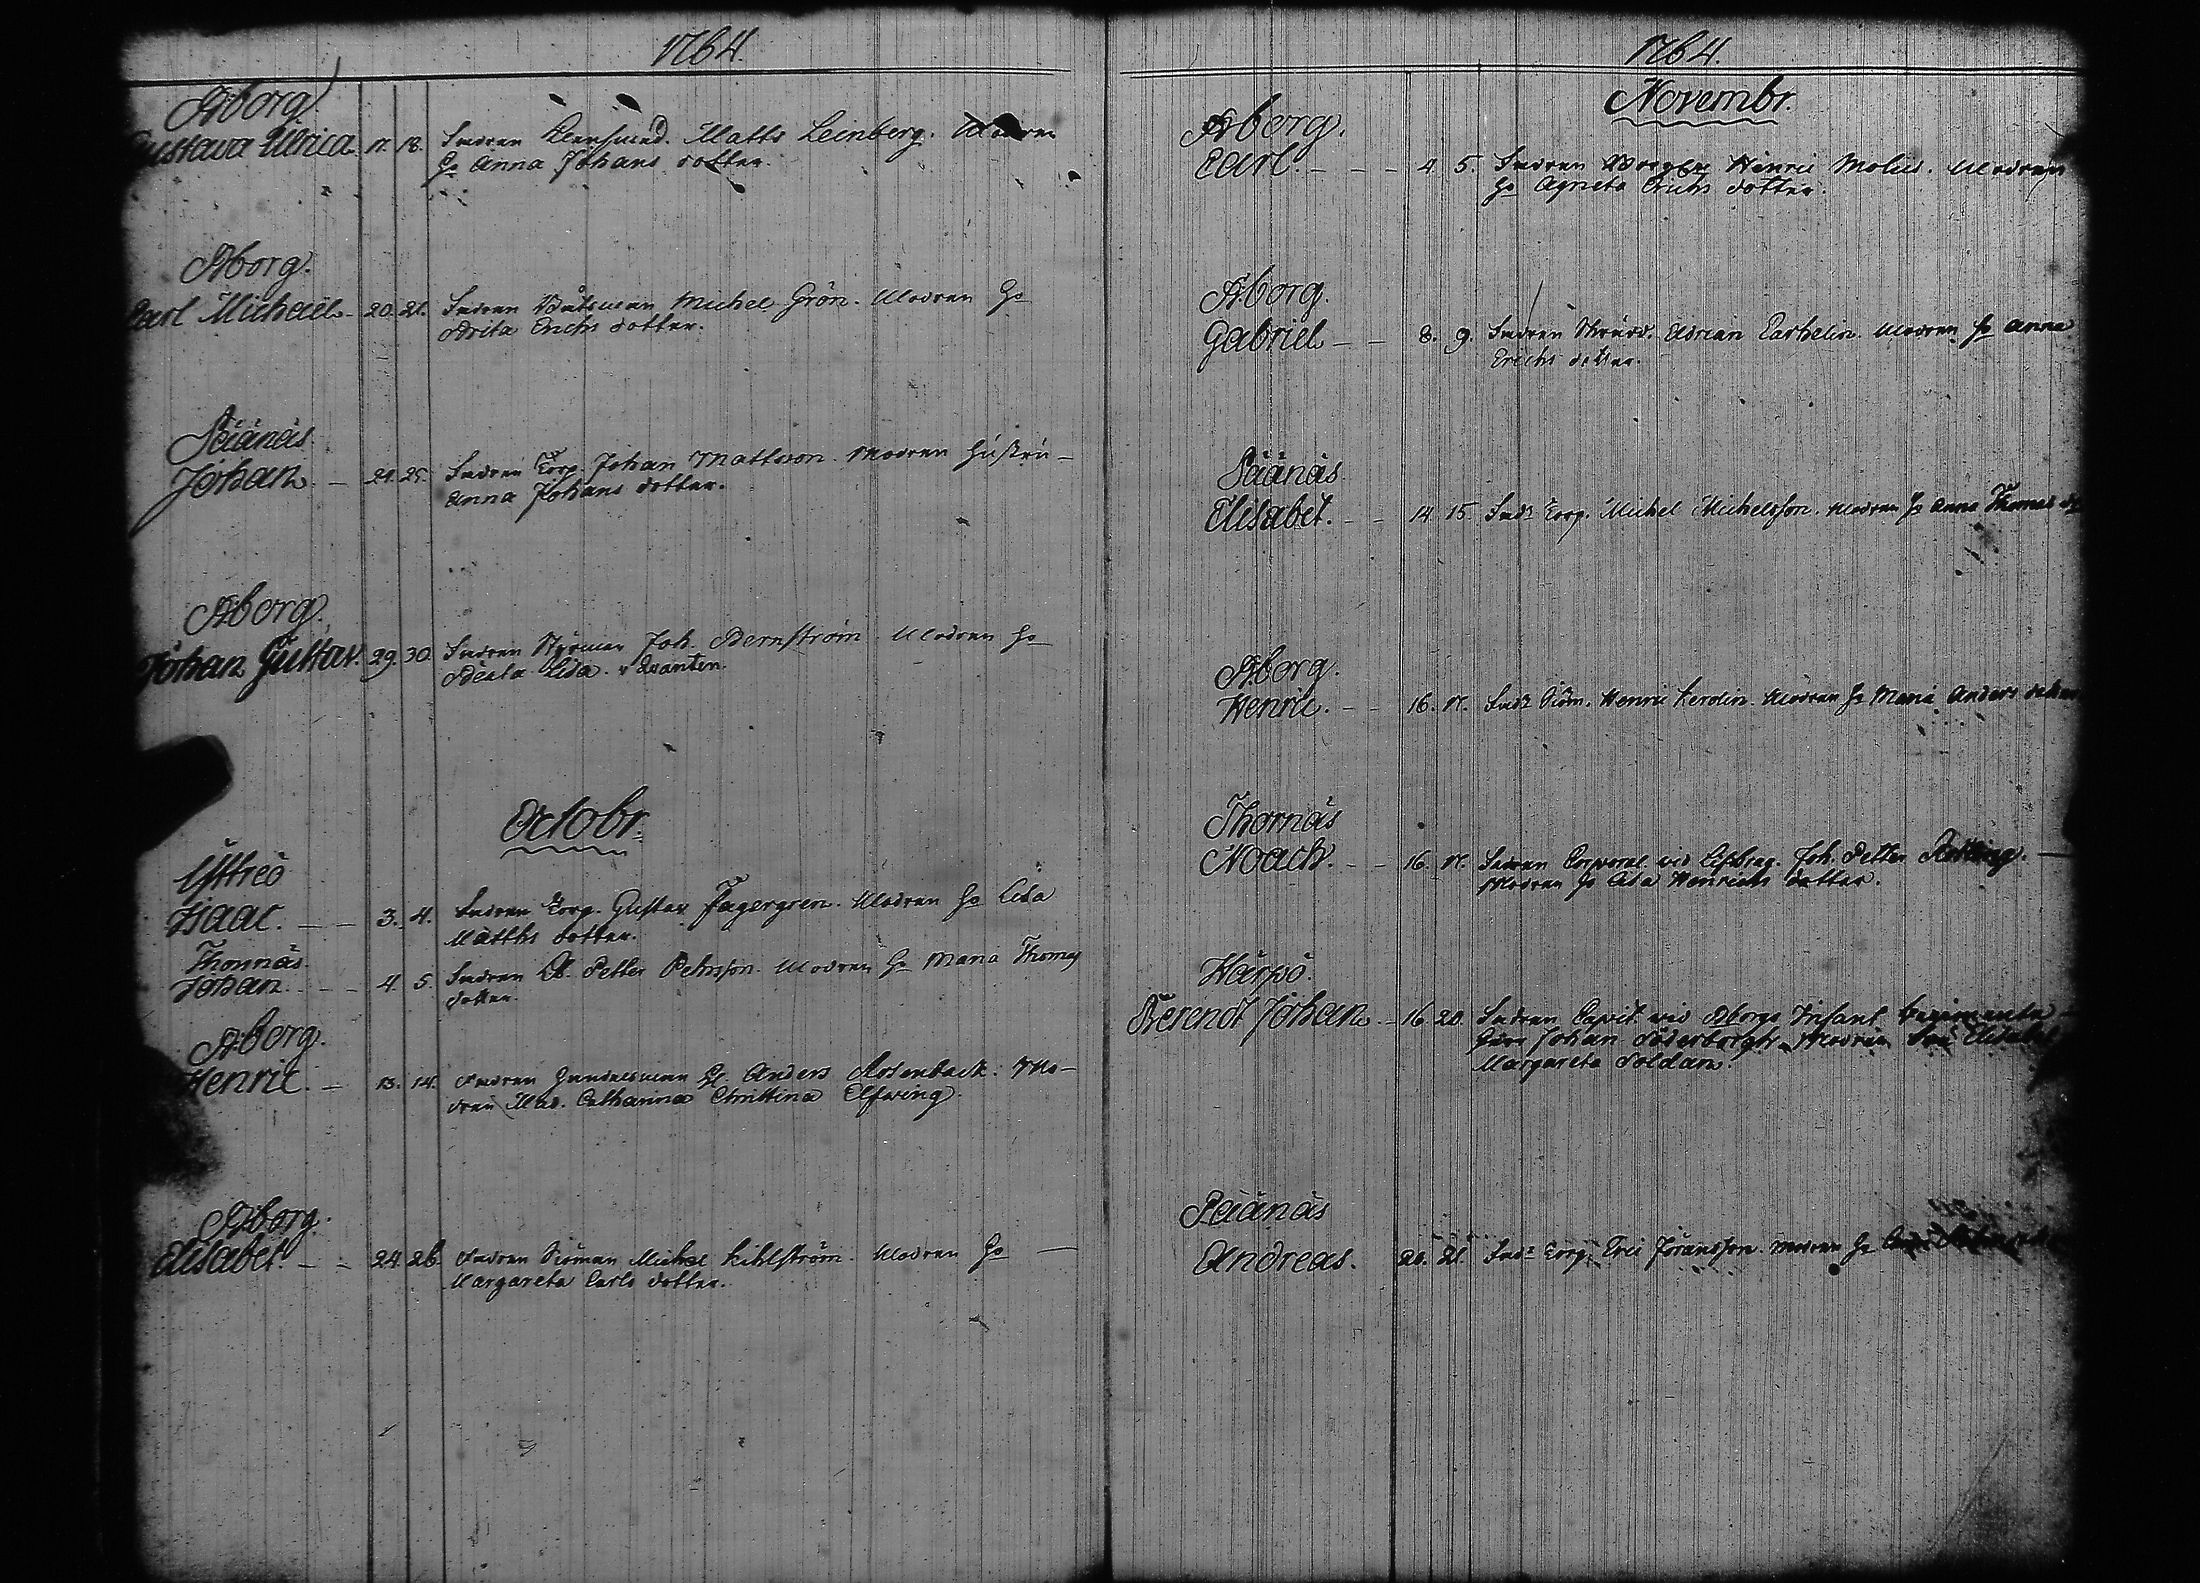 1764.
Åborg.
Gustava Ulrica 17. 18. Fadren Matts Leinberg. Modren
Ho Anna Johans dotter.
Åborg.
Carl Michael - 20. 21. Fadren Båtsman Michel Grön. Modren Ho
Brita Erichs dotter.
Pääнäs
Johan. - 24. 25. Fadren Torp. Johan Mattsson. Modren Hústrú -
Anna Johans dotter.
Åborg.
Johan Gustav. 29. 30. Fadren Styrman Joh. Bernström. Modren Ho
Beata Lisa v Qvanten.
Octobr.
Ystreö
Isaac. - - 3. 4. Fadren Torp. Gustav Fagergren. Modren Ho Lisa
Matths dotter.
Thomnäs
Johan. - - 4. 5. Fadren Petter Pehrsson. Modren Ho Maria Thomas
dotter.
Åborg.
Henric. - 13. 14. Fadren Handelsman Hr Anders Rosenback. Mo-
dren Mad. Catharina Christina Elfving.
Åborg.
Elisabet. - - 24. 26. Fadren Siöman Michel Kihlström. Modren Ho -
Margareta Carls dotter.
1764.
Novembr.
Åborg.
Carl. - - - 4. 5. Fadren Henric Molin. Modren
Ho Agneta Erichs dotter.
Åborg.
Gabriel - - 8. 9. Fadren Skrädd. Adrian Carhelin. Modren Ho Anna
Erichs dotter.
Päänäs
Elisabet. - - 14. 15. Fadr Torp. Michel Michelsson. Modren Ho Anna Thomas
Åborg.
Henric. - - 16. 17. Fadr Siöm. Henric Kerolin. Modren Ho Maria Anders dotter
Thornäs
Noach. - - 16. 17. Fadren Corporal vid Joh. Petter -
Modren Ho Lisa Henrichs dotter.
Härpö.
Berendt Johan. - 16. 20. Fadren Capit. vid Åborgs Infant. Regimente -
Herr Johan Söderborgh. Modren Fru Elisabet
Margareta Soldan.
Päänäs
Andreas. 20. 21. Fadr Torp. Eric Jöransson. Modren Ho